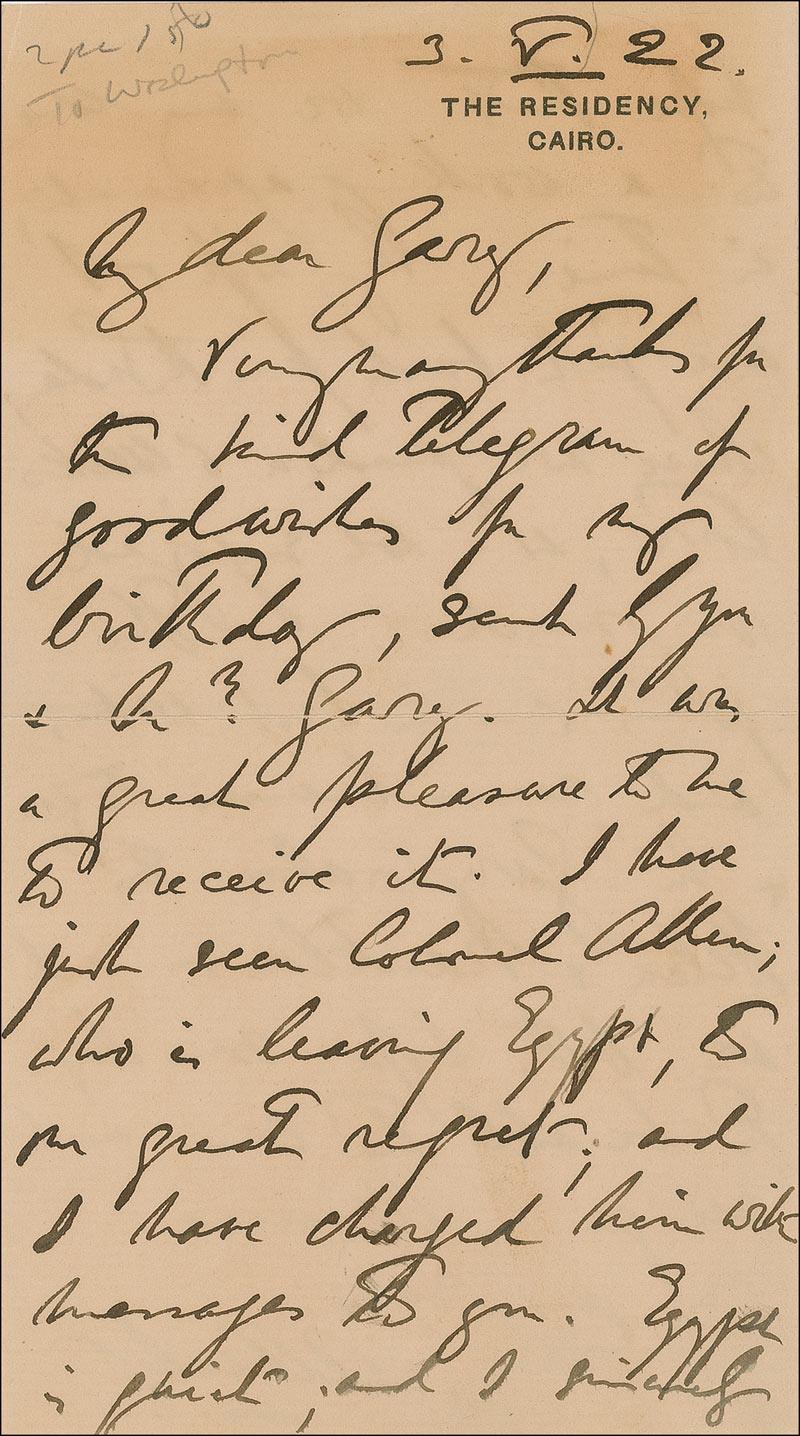 To Washington
3. V. 22.
THE RESIDENCY,
CAIRO.
My dear Gary,
Very many thanks for
the kind telegram of
good wishes for my
birthday, sent by you
& Gary. It was
a great pleasure to me
to receive it. I have
just seen Colonel Allen;
who is leaving Egypt, to
our great regret; and
I have charged him with
messages to you. Egypt
is quiet; and I sincerely